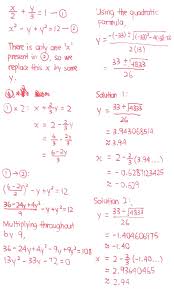 x/2 + y/3 = 1 — ①
x² - y + y² = 12 — ②
There is only one 'x'
present in ②, so we
replace this x by some
y.
① × 2: x + 2/3 y = 2
x = 2 - 2/3 y
= (6-2y)/3
① → ②:
((6-2y)/3)² - y + y² = 12
(36-24y+4y²)/9 - y + y² = 12
Multiplying throughout
by 9,
36-24y+4y²-9y+9y²=108
13y²-33y-72=0
Using the quadratic
formula,
y = (-(-33) ± √((-33)²-4(13)(-72)))/2(13)
= (33 ± √4833)/26
Solution 1:
y = (33 + √4833)/26
= 3.943068519
≈ 3.94
x = 2 - 2/3 (3.94....)
= -0.6287123425
≈ -0.629
Solution 2:
y = (33 - √4833)/26
= -1.404606975
≈ -1.40
x = 2 - 2/3 (-1.40...)
= 2.93640465
≈ 2.94